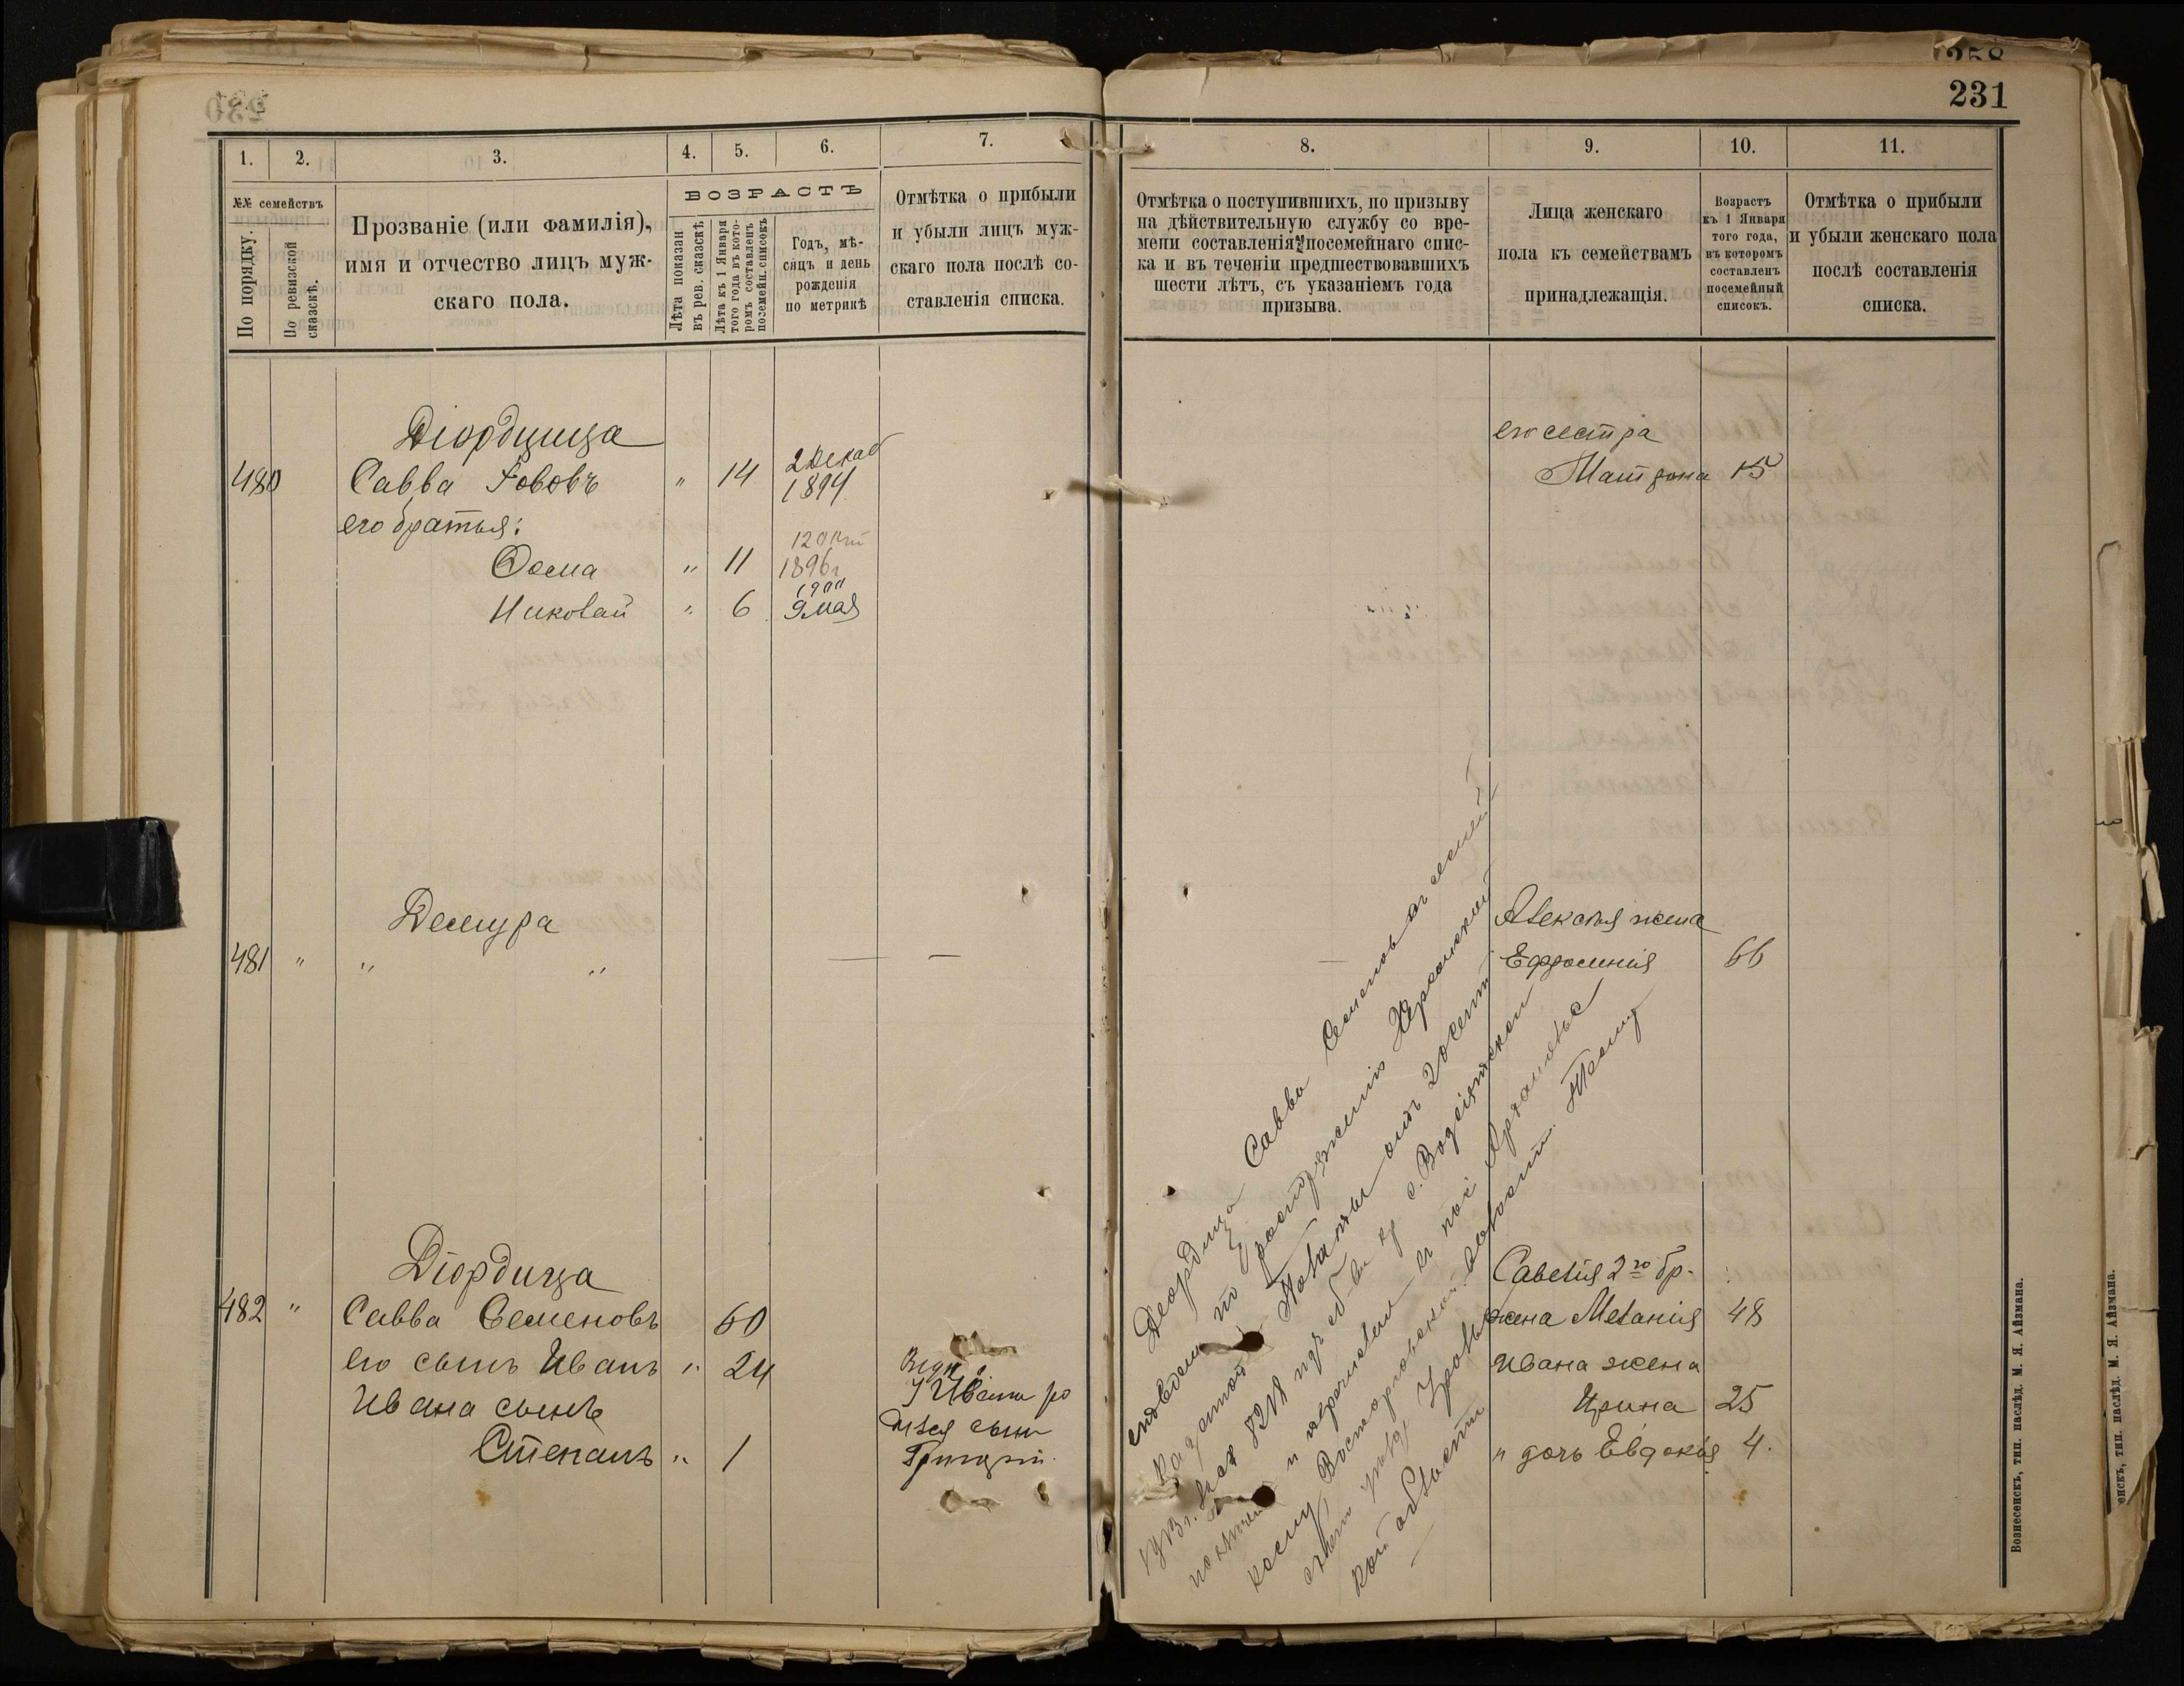 258
231
1. 2. 3. 4. 5. 6. 7.
№№ семействъ
По порядку.
По ревизской сказскѣ.
Прозваніе (или фамилія),
имя и отчество лицъ муж-
скаго пола.
ВОЗРАСТЪ
Лѣта показан
въ рев. сказскѣ
Лѣта къ 1 Января
того года въ кото-
ромъ составленъ
посемейн. списокъ
Годъ, мѣ-
сяцъ и день
рожденія
по метрикѣ
Отмѣтка о прибыли
и убыли лицъ муж-
скаго пола послѣ со-
ставленія списка.
Діордиица
480 Савва " 14 2 Декаб
1894.
его братья:
12 Окт
Фома " 11 1896г
1900
Николай " 6 9 мая
Демура
481 " " "
Діордица
482 " Савва Семеновъ 60
его сынъ Иванъ " 24
Ивана сынъ
Степанъ " 1
У Ивана ро
дился сынъ
Григорій.
8. 9. 10. 11.
Отмѣтка о поступившихъ, по призыву
на дѣйствительную службу со вре-
мени составленія посемейнаго спис-
ка и въ теченіи предшествовавшихъ
шести лѣтъ, съ указаніемъ года
призыва.
Лица женскаго
пола къ семействамъ
принадлежащія.
Возрастъ
къ 1 Января
того года,
въ которомъ
составленъ
посемейный
списокъ.
Отмѣтка о прибыли
и убыли женскаго пола
послѣ составленія
списка.
его сестра
Матрона 15
Алексѣя жена
Ефросинія 66
Савелія 2го бр.
жена Меланія 48
Ивана жена
Ирина 25
" дочь Евдокія 4.
Деордица Савва Семеновъ съ семьей
по распоряженію Херсонской
Казенной Палаты отъ 20 сент
8218
и перечисленъ
кой области
Вознесенскъ, тип. наслѣд. М. Я. Айзмана.
енскъ, тип. наслѣд. М. Я. Айзмана.